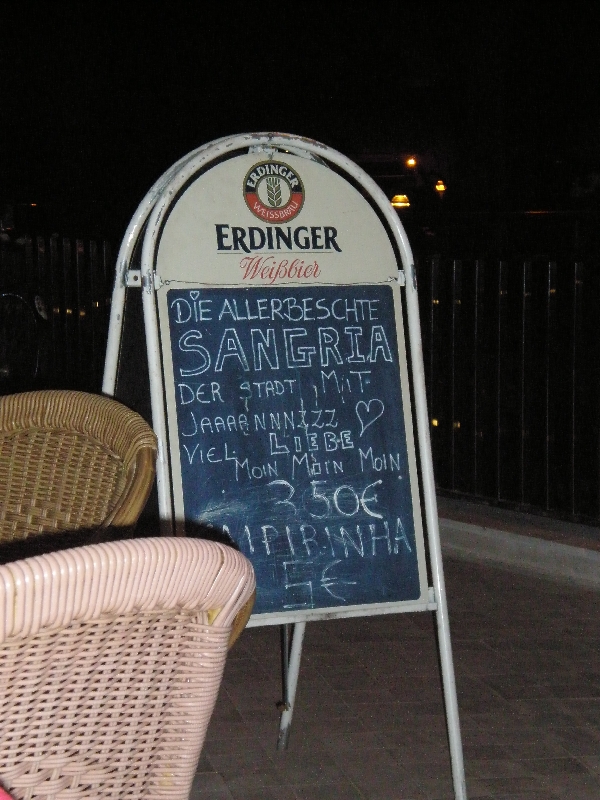 ERDINGER
WEISSBRÄU
ERDINGER
Weißbier
DIE ALLERBESCHTE
SANGRIA
DER STADT MIT
JAAAANNNIZZ
VIEL LIEBE
MOIN MOIN MOIN
3,50€
MPIRINHA
5€